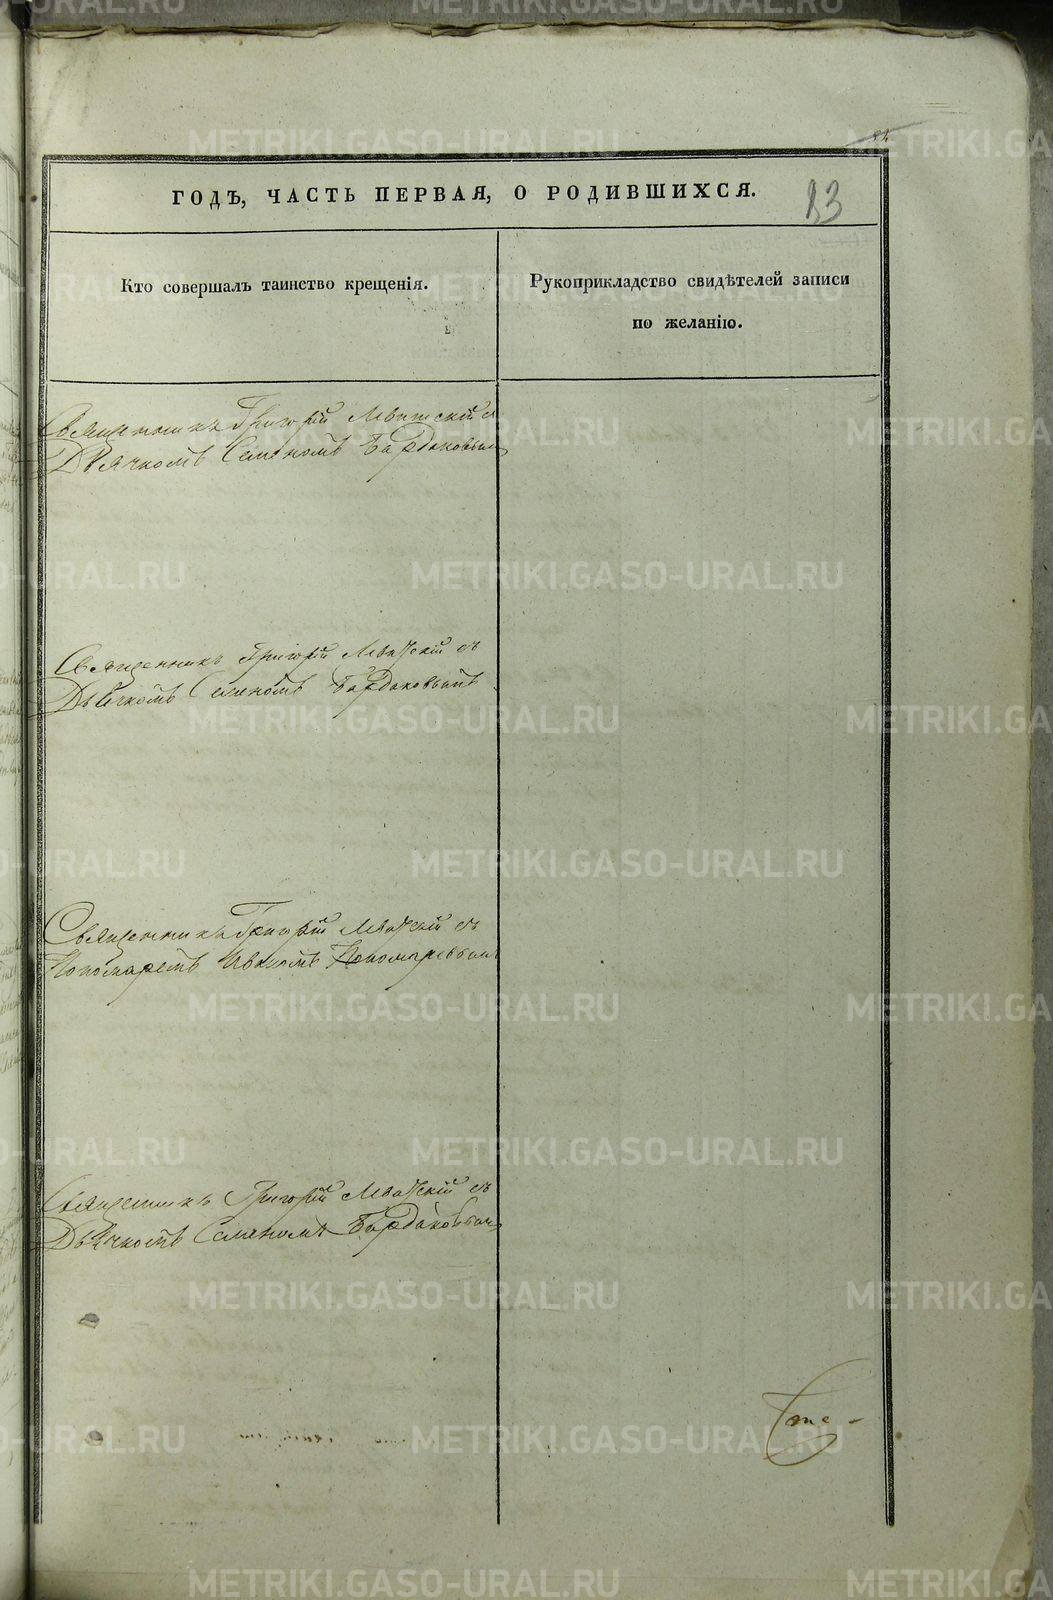 METRIKI.GASO-URAL.RU
ГОДЪ, ЧАСТЬ ПЕРВАЯ, О РОДИВШИХСЯ.
83
Кто совершалъ таинство крещенія.
Рукоприкладство свидѣтелей записи
по желанію.
Священникъ Григорій Левитскій съ
Дьячкомъ Семеномъ Бардаковымъ
Священникъ Григорій Левитскій съ
Дьячкомъ Семеномъ Бардаковымъ
Священникъ Григорій Левитскій съ
Пономаремъ Пономаревымъ
Священникъ Григорій Левитскій съ
Дьячкомъ Семеномъ Бардаковымъ